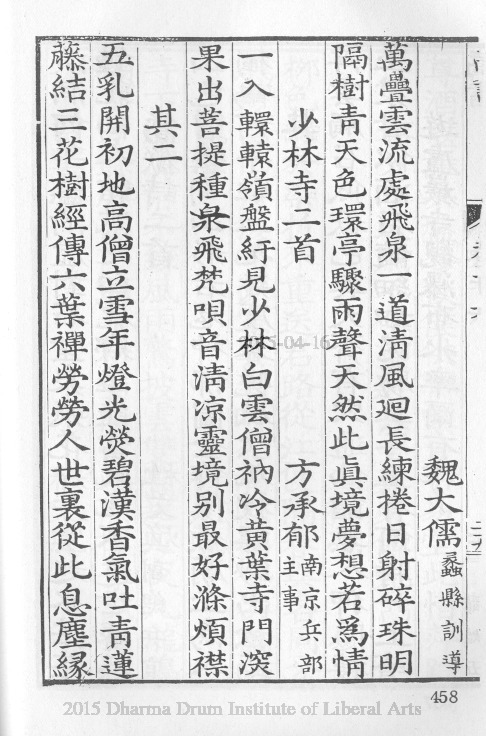 魏大儒蠡縣訓導
萬疊雲流處飛泉一道淸風廻長練捲日射碎珠明
隔樹靑天色環亭驟雨聲天然此眞境夢想若爲情
少林寺二首 方承郁南京兵部主事
一入轘轅嶺盤紆見少林白雲僧衲冷黃葉寺門深
果出菩提種泉飛梵唄音淸凉靈境別最好滌煩襟
其二
五乳開初地高僧立雪年燈光熒碧漢香氣吐靑蓮
藤結三花樹經傳六葉禪勞勞人世裏從此息塵緣
458
2015 Dharma Drum Institute of Liberal Arts